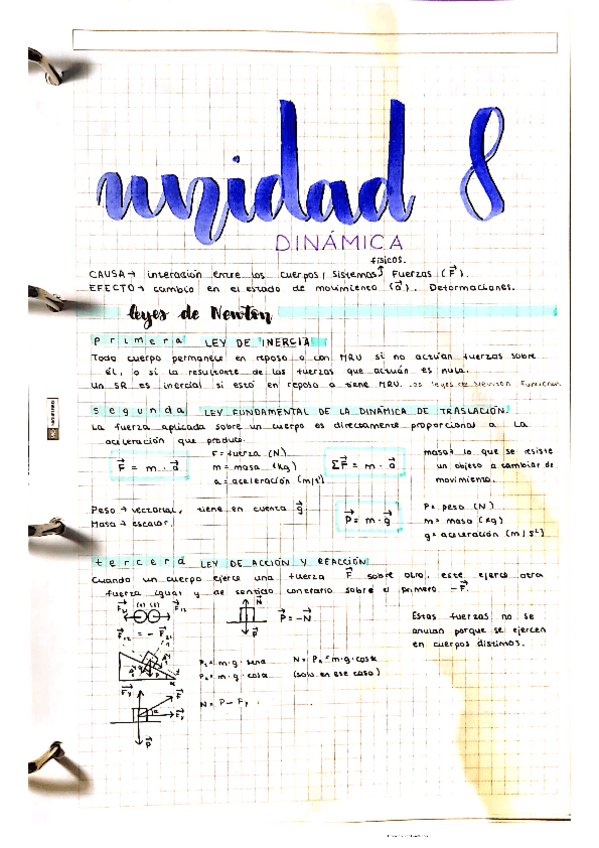 unidad 8
DINÁMICA
físicos.
CAUSA → interación entre los cuerpos / sistemas Fuerzas (F⃗).
EFECTO → cambio en el estado de movimiento (a⃗). Deformaciones.
leyes de Newton
primera LEY DE INERCIA
Todo cuerpo permanece en reposo o con MRU si no actúan fuerzas sobre
él, o si la resultante de las fuerzas que actúan es nula.
un SR es inercial si está en reposo o tiene MRU. Las leyes de Newton funcionan.
segunda LEY FUNDAMENTAL DE LA DINÁMICA DE TRASLACIÓN
La fuerza aplicada sobre un cuerpo es directamente proporcional a la
aceleración que produce.
F⃗ = m · a⃗
F = fuerza (N)
m = masa (kg)
a = aceleración (m/s²)
ΣF⃗ = m · a⃗
masa: lo que se resiste
un objeto a cambiar de
movimiento.
Peso → vectorial, tiene en cuenta g⃗.
Masa → escalar.
P⃗ = m · g⃗
P = peso (N)
m = masa (kg)
g = aceleración (m/s²)
tercera LEY DE ACCIÓN Y REACCIÓN
Cuando un cuerpo ejerce una fuerza F⃗ sobre otro, este ejerce otra
fuerza igual y de sentido contrario sobre el primero -F⃗.
F⃗₂₁ (1) (2) F⃗₁₂
F⃗₁₂ = - F⃗₂₁
N⃗
P⃗
P⃗ = -N⃗
Estas fuerzas no se
anulan porque se ejercen
en cuerpos distintos.
= m · g · senα
= m · g · cosα
N = = m · g · cosα
(solo en este caso)
N = P - Fy